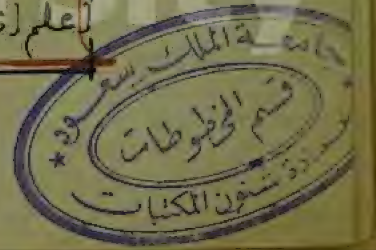 اعلم
جامعة الملك سعود
قسم المخطوطات
شئون المكتبات